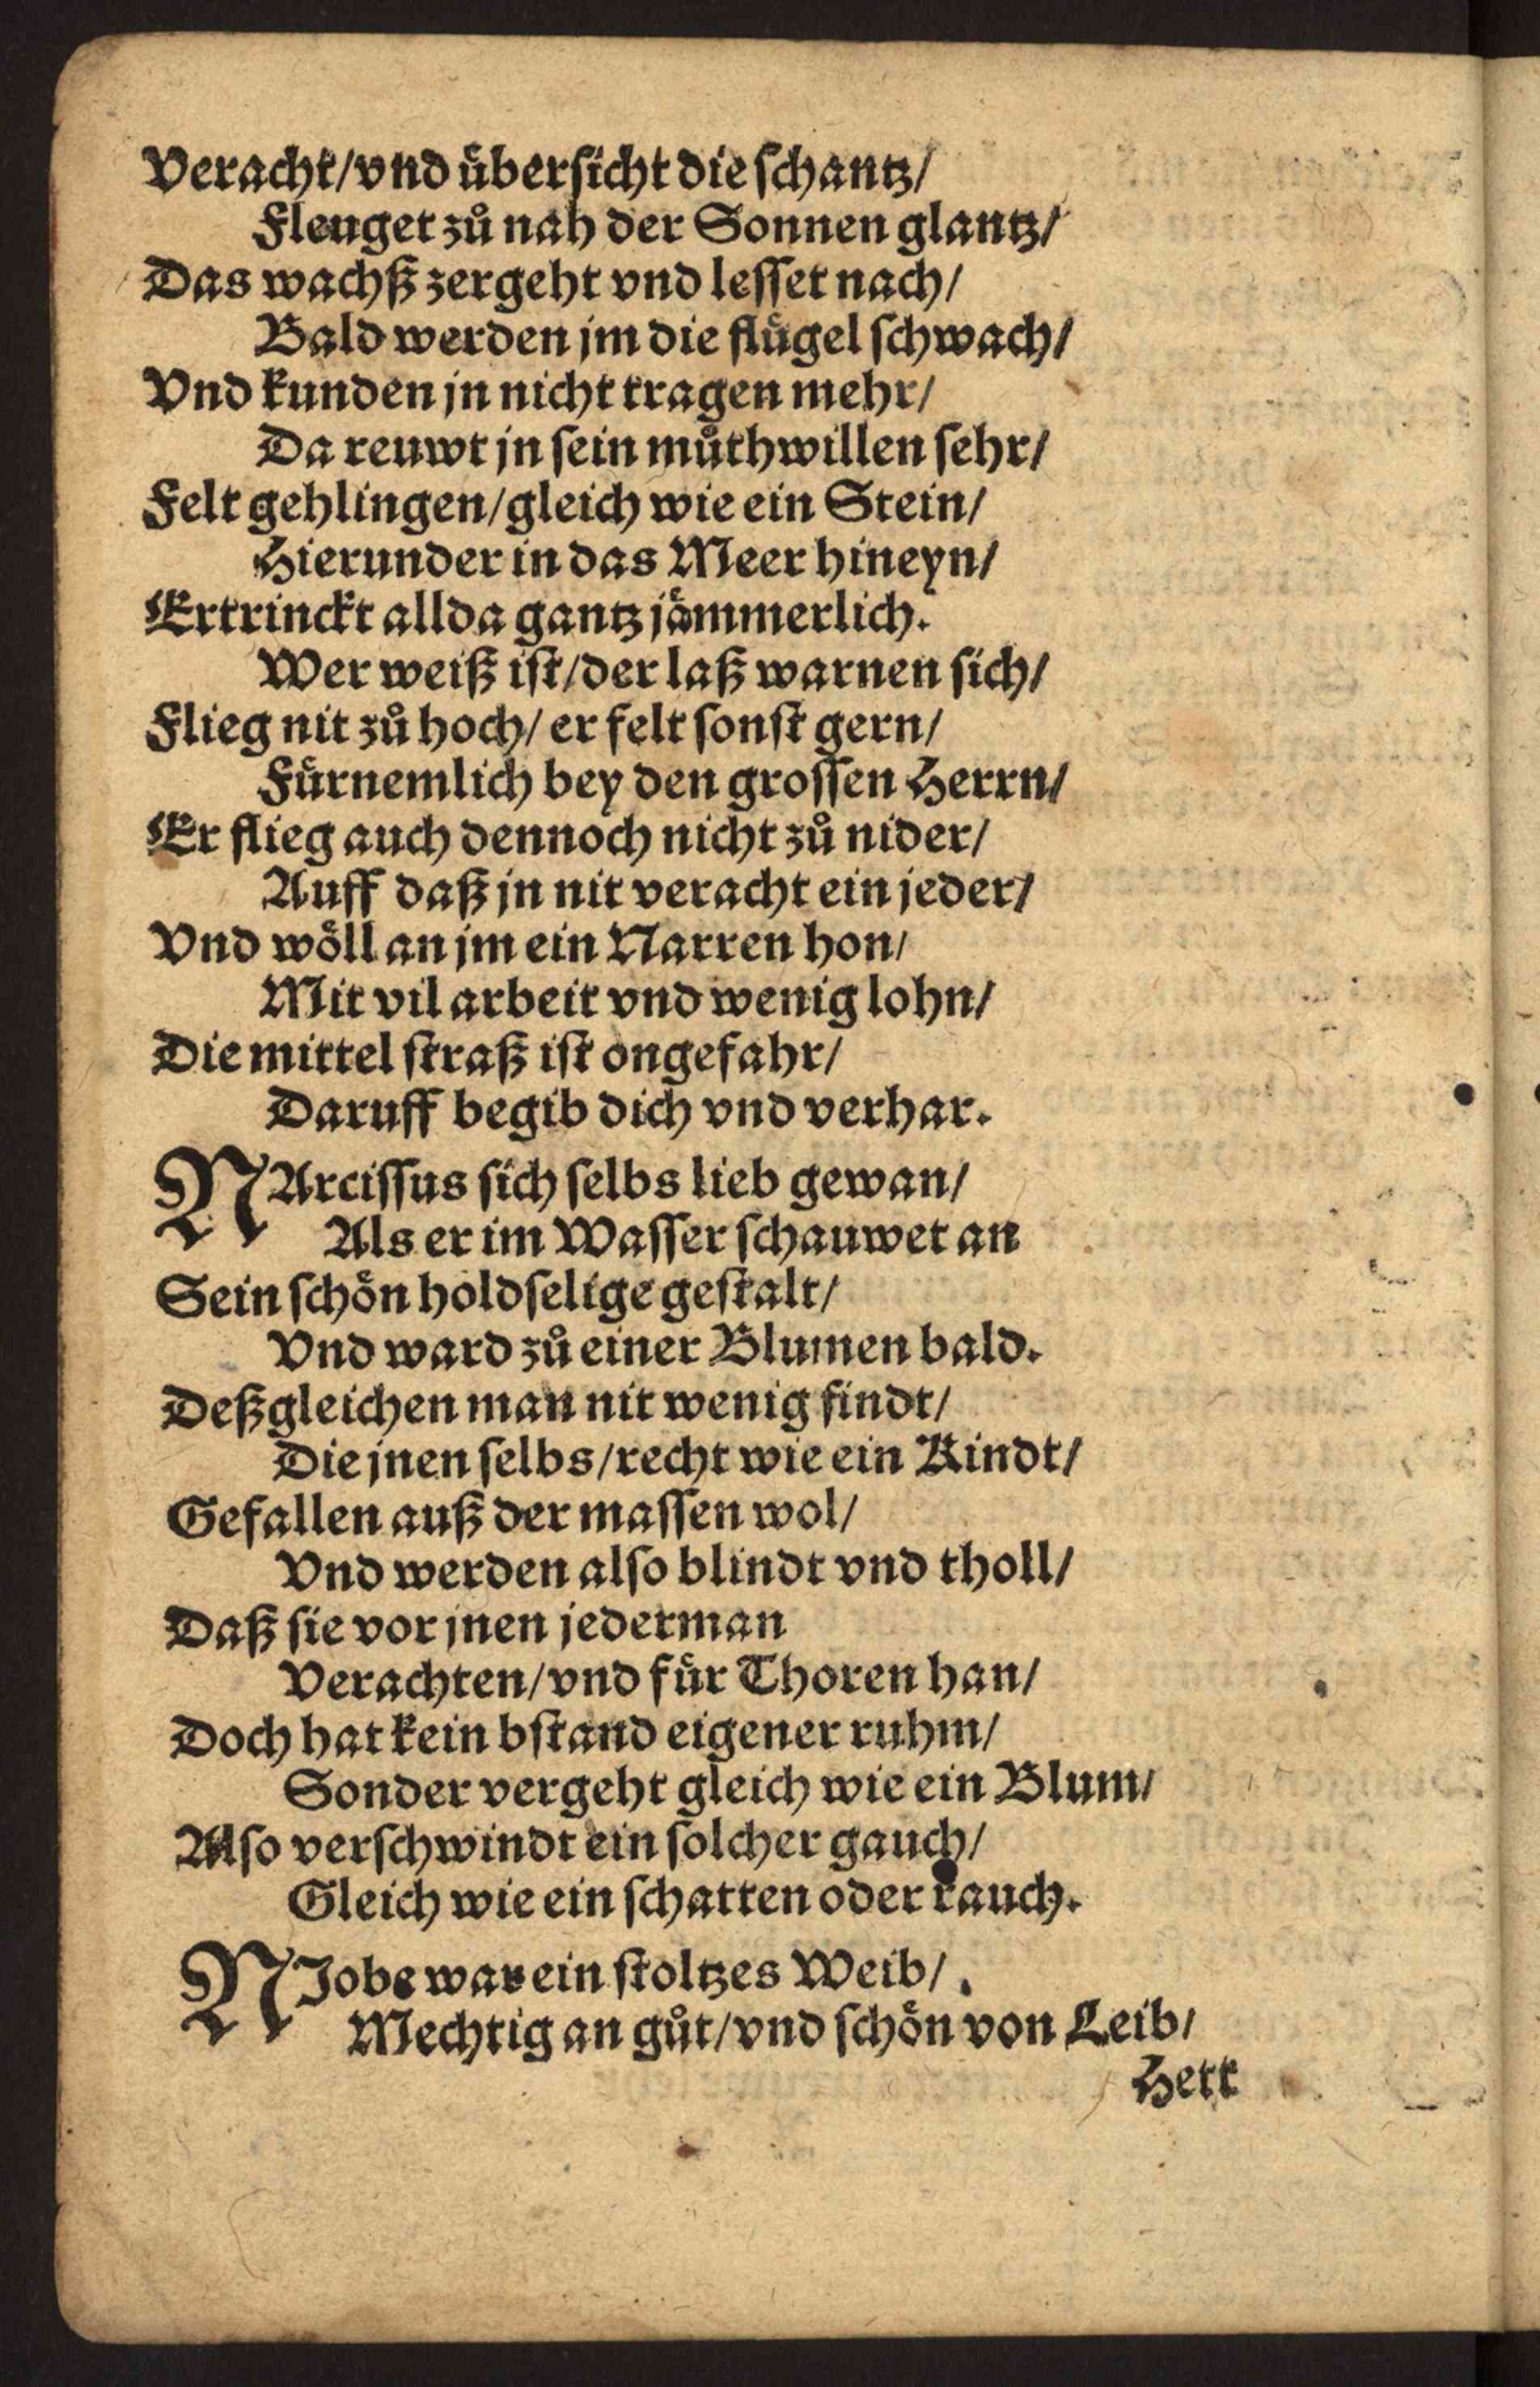 Veracht/vnd uͤberſicht die ſchantz/
Fleuget zuͦ nah der Sonnen glantz/
Das wachß zergeht vnd leſſet nach/
Bald werden jm die fluͤgel ſchwach/
Vnd kunden jn nicht tragen mehr/
Da reuwt jn ſein muͦthwillen ſehr/
Felt gehlingen/gleich wie ein Stein/
Hierunder in das Meer hineyn/
Ertrinckt allda gantz jaͤmmerlich.
Wer weiß iſt/der laß warnen ſich/
Flieg nit zuͦ hoch/ er felt ſonſt gern/
Fuͤrnemlich bey den groſſen Herrn/
Er flieg auch dennoch nicht zuͦ nider/
Auff daß jn nit veracht ein jeder/
Vnd woͤll an jm ein Narren hon/
Mit vil arbeit vnd wenig lohn/
Die mittel ſtraß iſt ongefahr/
Daruff begib dich vnd verhar.
NArciſſus ſich ſelbs lieb gewan/
Als er im Waſſer ſchauwet an
Sein ſchoͤn holdſelige geſtalt/
Vnd ward zuͦ einer Blumen bald.
Deßgleichen man nit wenig findt/
Die jnen ſelbs/recht wie ein Kindt/
Gefallen auß der maſſen wol/
Vnd werden alſo blindt vnd tholl/
Daß ſie vor jnen jederman
Verachten/vnd fuͤr Thoren han/
Doch hat kein bſtand eigener ruhm/
Sonder vergeht gleich wie ein Blum/
Alſo verſchwindt ein ſolcher gauch/
Gleich wie ein ſchatten oder rauch.
NJobe war ein ſtoltzes Weib/
Mechtig an guͦt/vnd ſchoͤn von Leib/
Hett